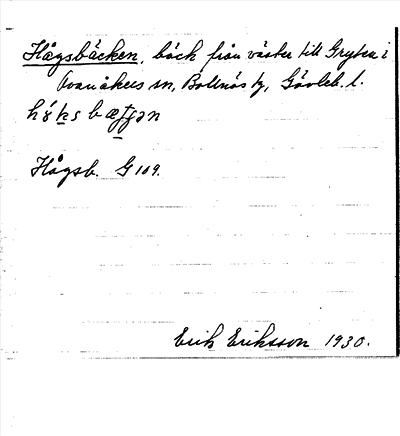 Hågsbäcken, bäck från väster till Gryten i
Ovanåkers sn, Bollnäs tg, Gävleb. l.
Hågsb. G 109.
Erik Eriksson 1930.